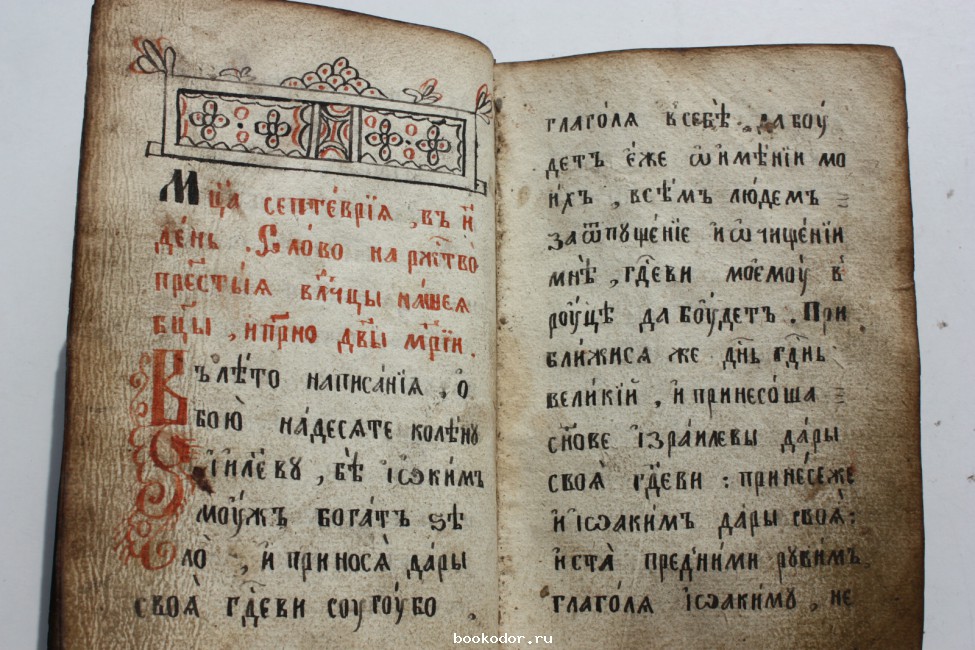 Мц҃а септе́врїя , въ и҃
де́нь . Сло́во на ржⷭ҇тво̀
прест҃ы́я влⷣчцы на́шея
бцⷣы , и прⷭ҇но дв҃ы мр҃їи .
Въ лѣ́то написа́нїя , о
бою̀ на́десяте колѣ́нѹ
і҆и҃лѐву , бѣ̀ і҆ѡки́мъ
моу́жъ бога́тъ ѕѣ
ло̀ , и҆ приносѧ̀ да́ры
своѧ̀ гдⷭ҇еви соугоу́бо .
глаго́лѧ в себѣ̀ . да боу́
детъ е҆́же ѡ҆ и҆мѣ́нїи мо
и́хъ , всѣ́мъ лю́демъ
за ѿпуще́нїе и҆ ѡ҆чище́нїи
мнѣ̀ , гдⷭ҇еви моемоу̀ в
роу́цѣ да боу́детъ . При
бли́жися же дн҃ь гдⷭ҇нь
вели́кїй , и҆ принесо́ша
сн҃ове і҆зра́илевы да́ры
своѧ̀ гдⷭ҇еви : прине́се же
и҆ і҆ѡаки́мъ да́ры своѧ̀ :
и҆ ста̀ пред̾ ни́ми руви́мъ
глаго́лѧ і҆ѡаки́мѹ , не
bookodor.ru